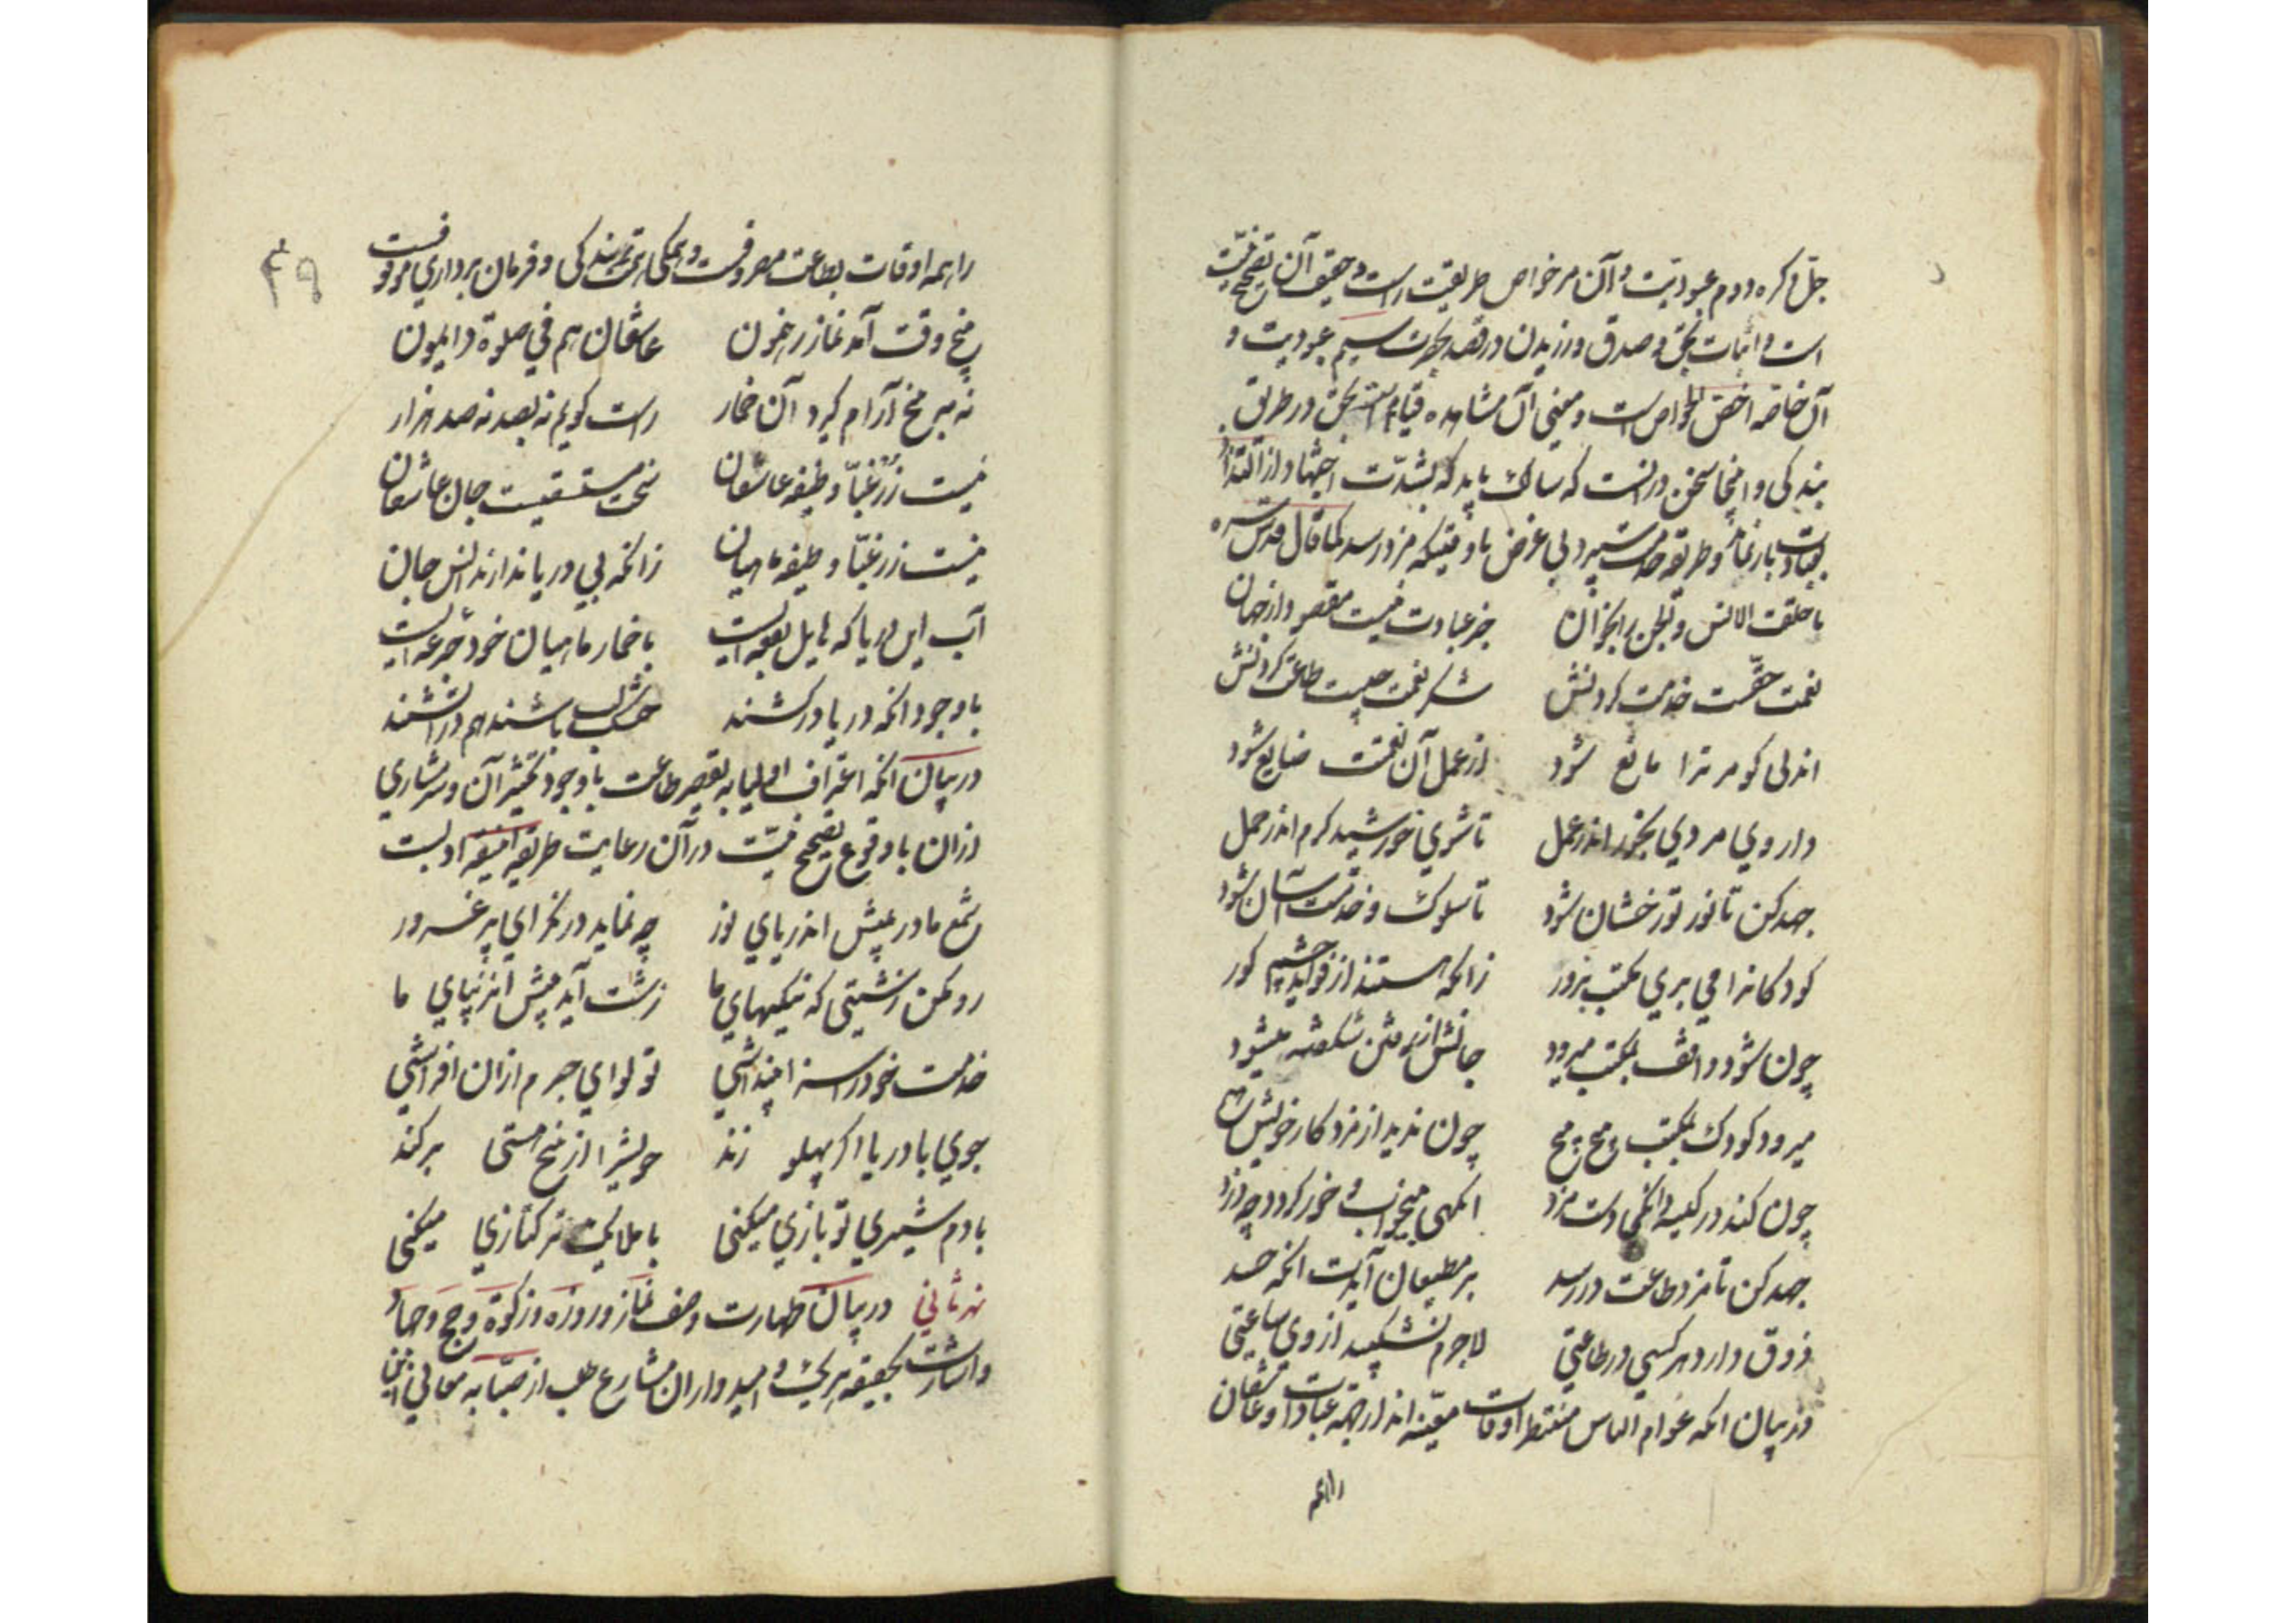 جل ذکره دوم عبودیت و آن مر خواص طریقت راست و حقیقت آن تصحیح نیت
است و اثبات بحق و صدق ورزیدن در قصد بحضرت سیم عبودیت و
آن خاصه اخص الخواص است و معنی آن مشاهده قیام بحق در طریق
بندکی و اینجا سخن در آنست که سالک باید که بشدت اجتهاد از التذاذ
عبادت باز نماند و طریقه خدمت سپرد بی غرض تا وقتیکه مزد رسد کما قال قدس سره
ما خلقت الانس و الجن را بخوان جز عبادت نیست مقصود از جهان
نعمت حقست خدمت کردنش شکر نعمت چیست طاعت کردنش
اندلی کو مر ترا مانع شود از عمل آن نعمتت ضایع شود
دار وی مردی بخور اندر عمل تا شوی خورشید کرم اندر حمل
جهد کن تا نور تو رخشان شود تا سلوک و خدمتت آسان شود
کودکانرا می بری مکتب بزور زانکه هستند از فواید چشم کور
چون شود واقف بمکتب میرود جانش از رفتن شکفته میشود
میرود کودک بمکتب پیچ پیچ چون ندید از مزد کار خویش هیچ
چون کند در کیسه دانکی دست مزد انکهی بیخواب و خور کردد چو دزد
جهد کن تا مزد طاعت در رسد بر مطیعان آیدت انکه حسد
ذوق دارد هر کسی در طاعتی لاجرم نشکیبد از وی ساعتی
در بیان انکه عوام الناس منتظر اوقات معینه اند از جهة عبادات و عاشقان
را همه
۴۹
را همه اوقات بطاعت مصروفست و همکی همت ببندکی و فرمان برداری موقوفست
پنج وقت آمد نماز رهنمون عاشقان هم فی صلوة دائمون
نه به پنج آرام کیرد آن خمار راست کویم نه بصد نه صد هزار
نیست زر غبا وظیفه عاشقان سخت مستسقیست جان عاشقان
نیست زر غبا وظیفه ماهیان زانکه بی دریا ندارند انس جان
آب این دریا که هایل بقعه ایست با خمار ماهیان خود جرعه ایست
با وجود انکه دریا در کشند خشک لب باشند هم در آتشند
در بیان انکه اعتراف اولیا به تقصیر طاعت با وجود تکثیر آن و سرشاری
از ان با وقوع تصحیح نیت در آن رعایت طریقه انیقه ادبست
شمع ما در پیش اندر پای نور چه نماید در نکر ای پر غرور
رو مکن زشتی که نیکیهای ما زشت آید پیش آن زیبای ما
خدمت خود را سزا پنداشتی تو لوای جرم از ان افراشتی
جوی با دریا اکر پهلو زند خویشرا از بیخ هستی برکند
با دم شیری تو بازی میکنی با ملایک ترکتازی میکنی
نهر ثانی در بیان طهارت و صف نماز و روزه و زکوة و حج و جهاد
و اشارت بحقیقه هر یک و امیدواران مشارع طلب از صبابه معانی این